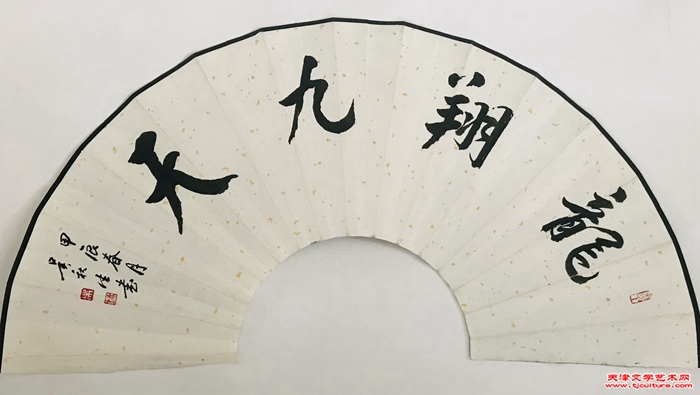 龍翔九天
甲辰春月
吴秋生書
天津文学艺术网
www.tjculture.com